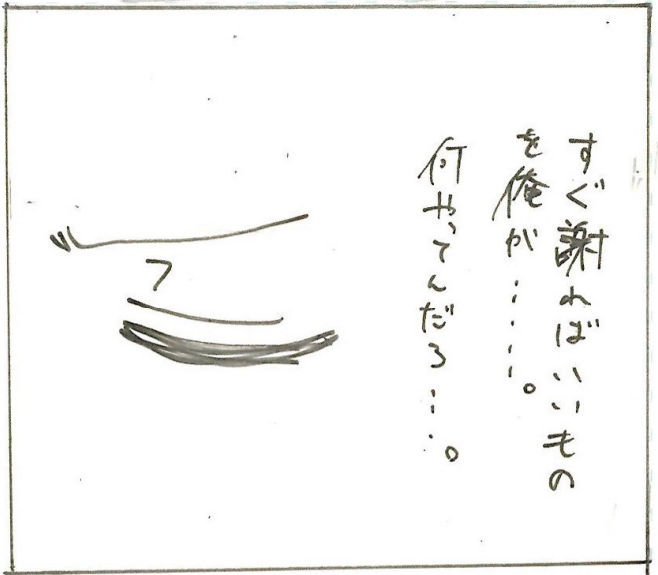 すぐ謝ればいいもの
を俺が‥‥。
何やってんだろ‥‥。